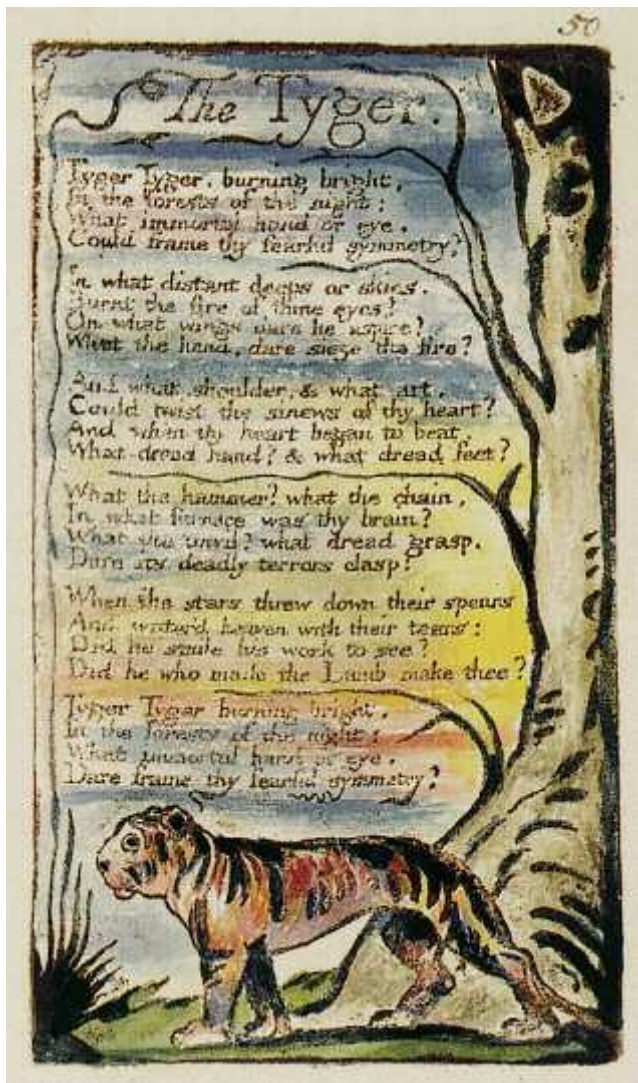 50
The Tyger.
Tyger Tyger, burning bright,
In the forests of the night;
What immortal hand or eye,
Could frame thy fearful symmetry?
In what distant deeps or skies,
Burnt the fire of thine eyes?
On what wings dare he aspire?
What the hand, dare sieze the fire?
And what shoulder, & what art,
Could twist the sinews of thy heart?
And when thy heart began to beat,
What dread hand? & what dread feet?
What the hammer? what the chain,
In what furnace was thy brain?
What the anvil? what dread grasp,
Dare its deadly terrors clasp?
When the stars threw down their spears
And water'd heaven with their tears:
Did he smile his work to see?
Did he who made the Lamb make thee?
Tyger Tyger burning bright,
In the forests of the night:
What immortal hand or eye,
Dare frame thy fearful symmetry?